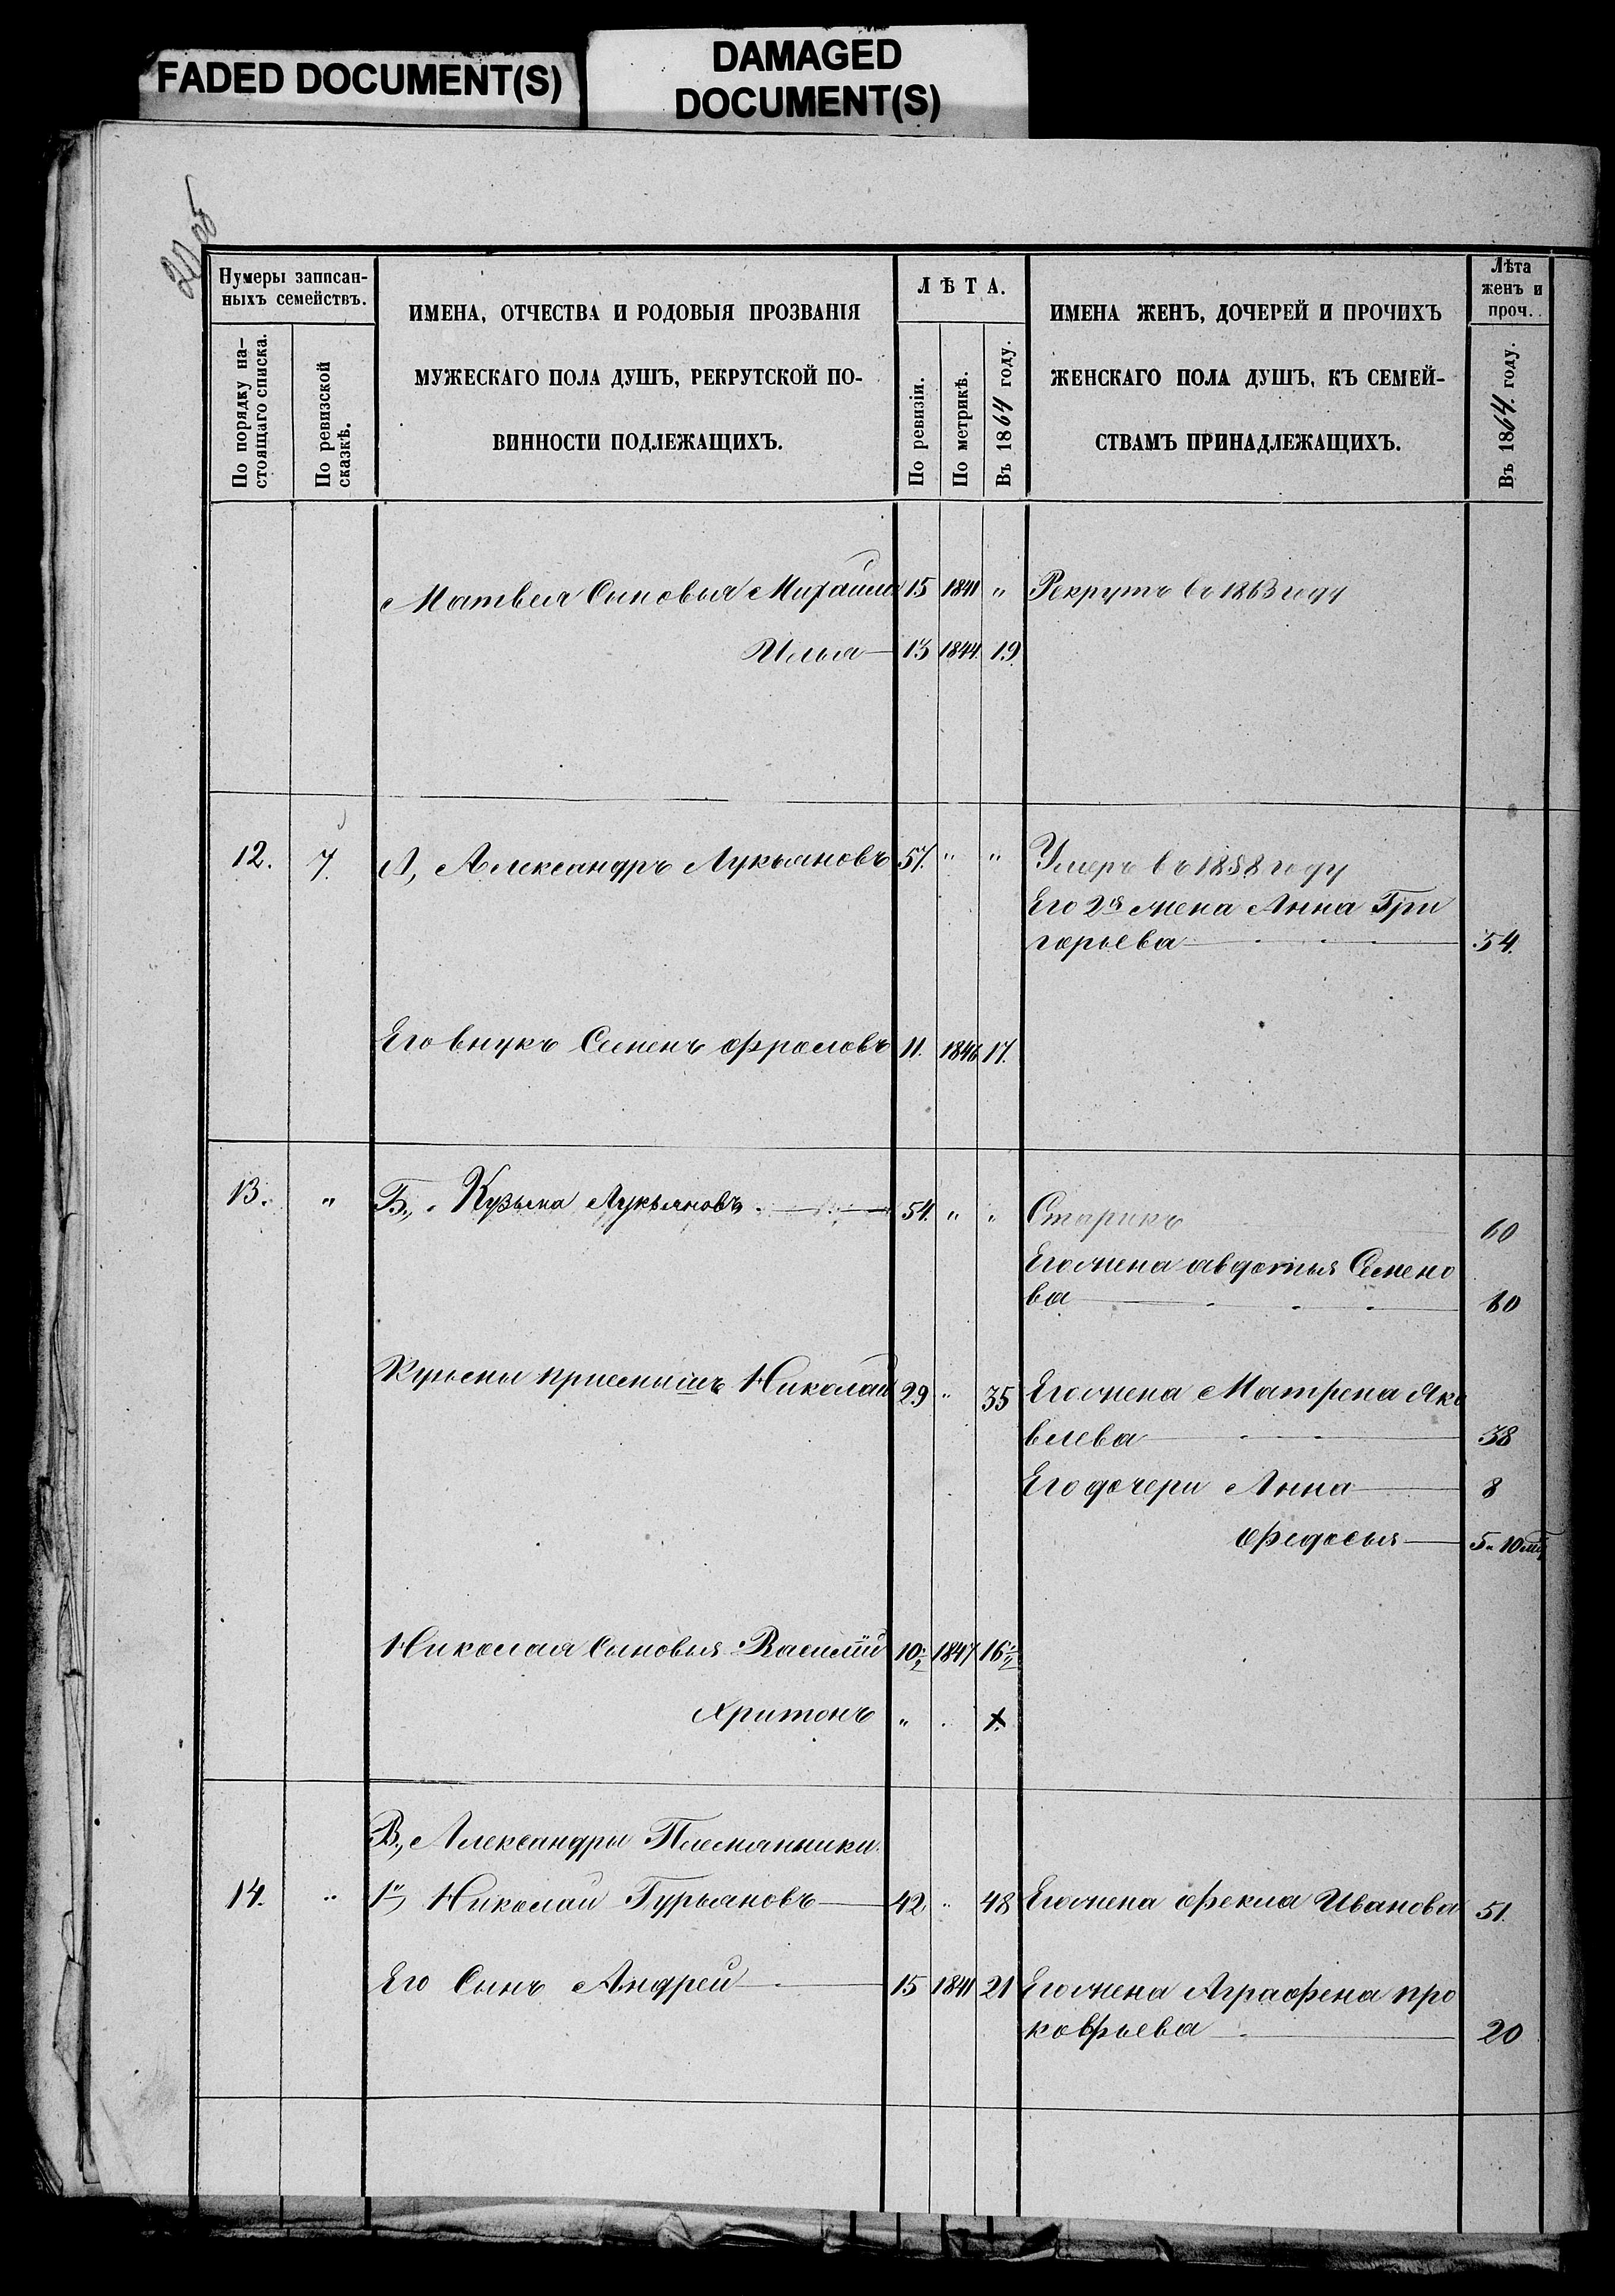 FADED DOCUMENT(S)
DAMAGED
DOCUMENT(S)
20 об
Нумеры записан-
ныхъ семействъ.
По порядку на-
стоящаго списка.
По ревизской
сказкѣ.
ИМЕНА, ОТЧЕСТВА И РОДОВЫЯ ПРОЗВАНІЯ
МУЖЕСКАГО ПОЛА ДУШЪ, РЕКРУТСКОЙ ПО-
ВИННОСТИ ПОДЛЕЖАЩИХЪ.
ЛѢТА.
По ревизіи.
По метрикѣ.
Въ 1864 году.
ИМЕНА ЖЕНЪ, ДОЧЕРЕЙ И ПРОЧИХЪ
ЖЕНСКАГО ПОЛА ДУШЪ, КЪ СЕМЕЙ-
СТВАМЪ ПРИНАДЛЕЖАЩИХЪ.
Лѣта
женъ и
проч.
Въ 1864. году.
Матвея Сыновья Михайла 15 1841 " Рекрутъ въ 1863 году
Илья 13 1844. 19.
12. 7. А, Александръ Лукьяновъ 57. " " Умеръ въ 1858 году
Его 2я жена Анна Гри
горьева 54.
Его внукъ Семенъ Фроловъ 11. 1846 17.
13. " Б., Кузьма Лукьяновъ 54. " " Старикъ 60
Его жена авдотья Семено
ва 60
Кузьмы приемышъ Николай 29 " 35 Его жена Матрена Яко
влева 38
Его дочери Анна 8
Федосья 5 10 мц
Николая Сыновья Василій 10½ 1847 16½
Хритонъ " . х.
В., Александры Племянники.
14. " 1й Николай Гурьяновъ 42 " 48 Его жена Фекла Иванова 51.
Его Сынъ Андрей 15 1841 21 Его жена Аграфена про
кофьева 20